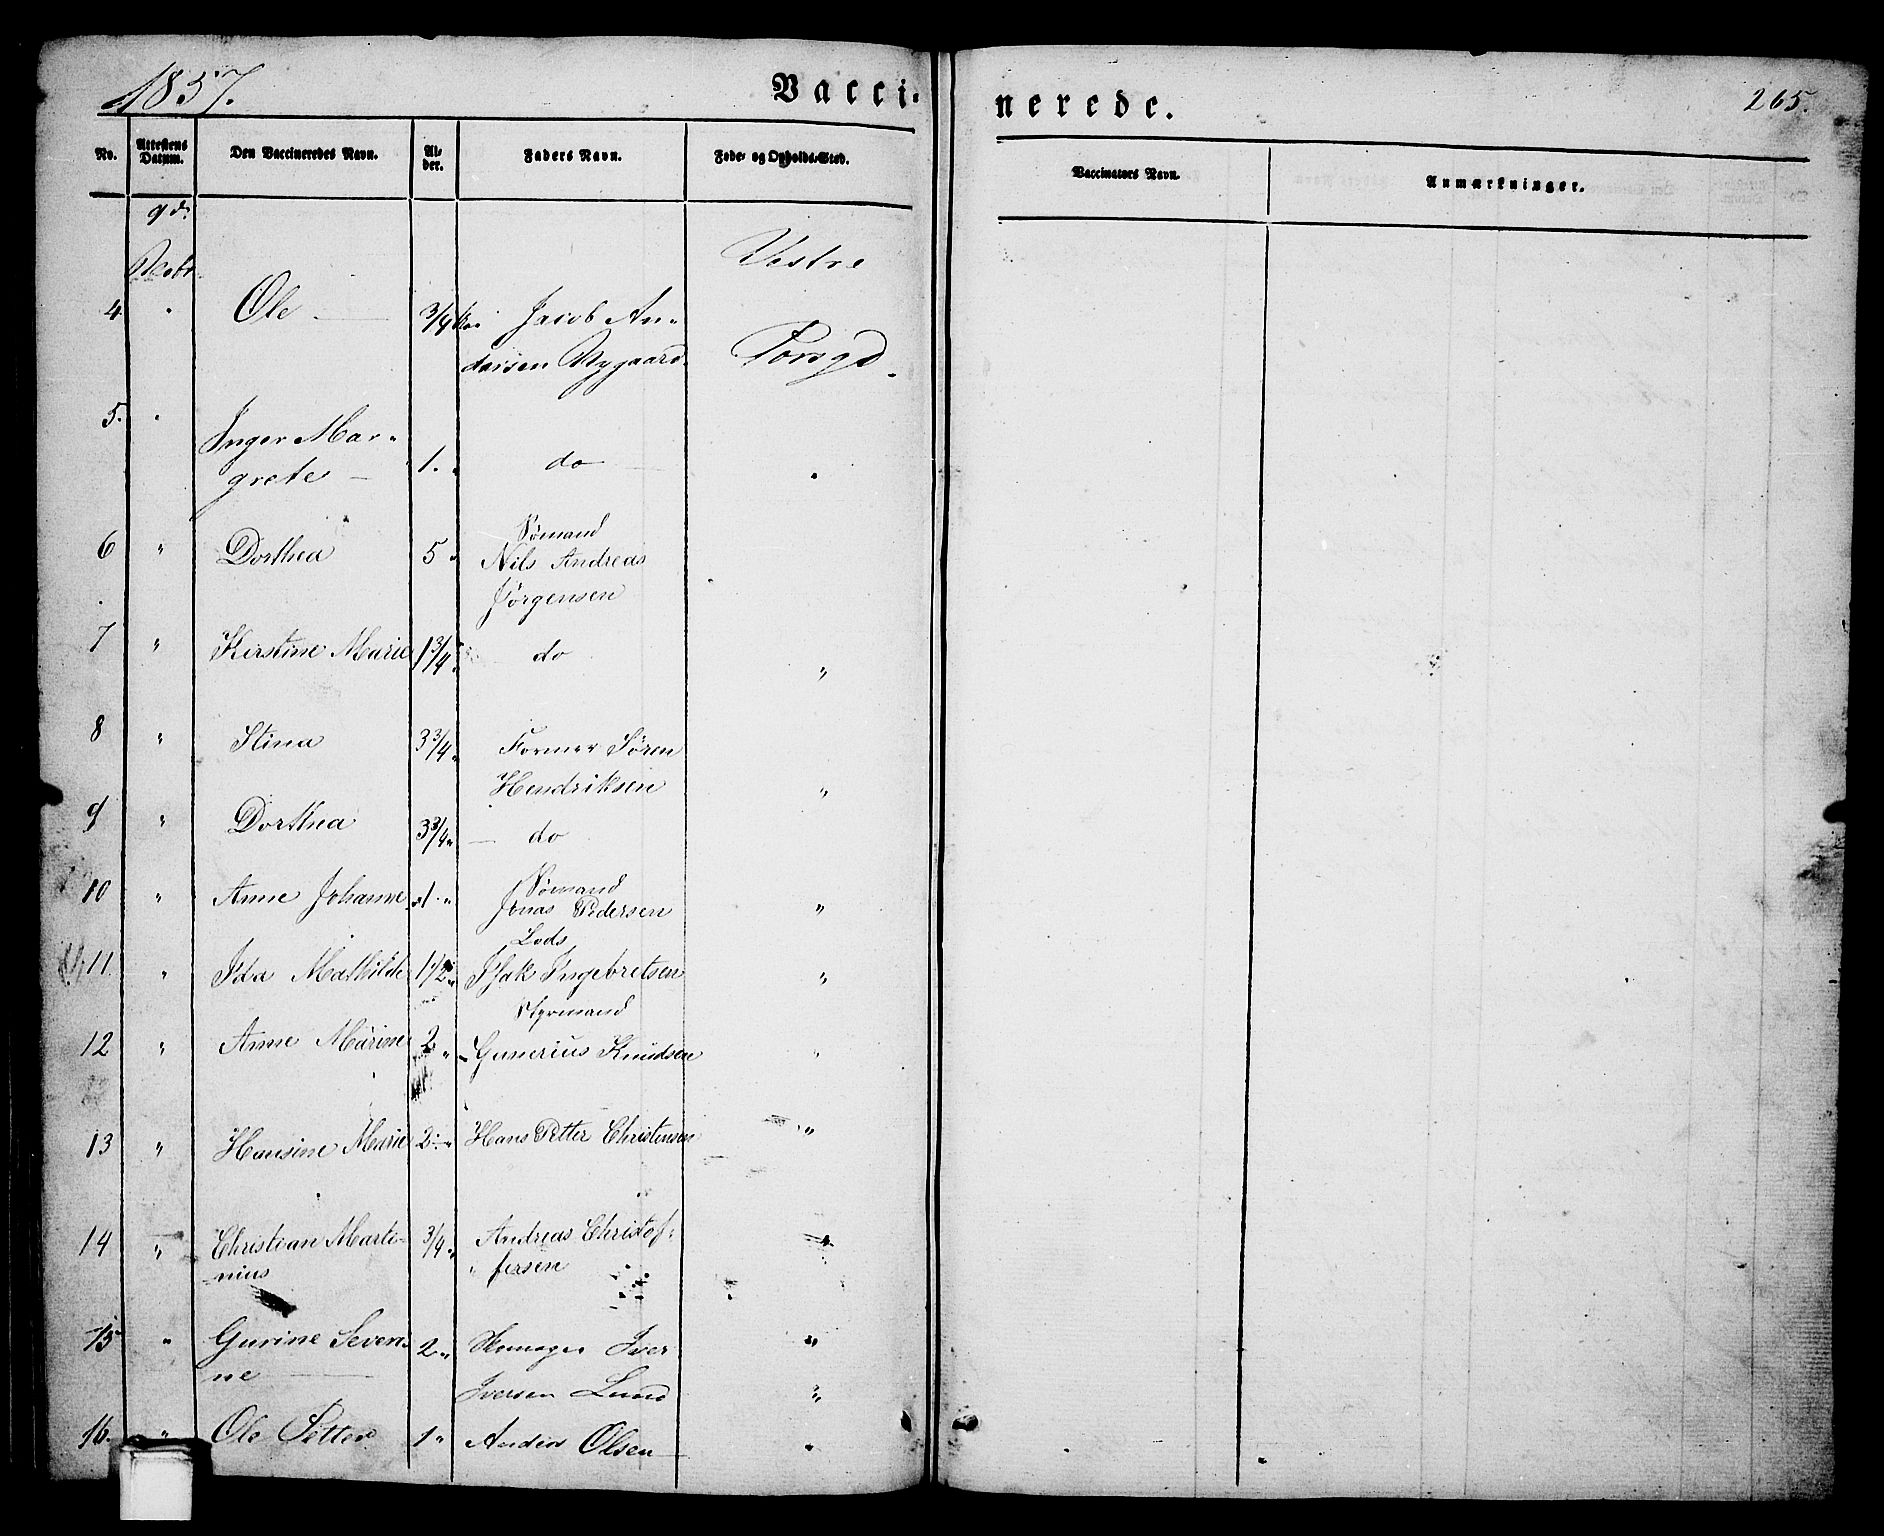 1857.
Vacci-
nerede.
265.
No.
Attestens Datum.
Den Vaccineredes Navn.
Al-
der.
Faders Navn.
Føde- og Opholds-Sted.
Vaccinators Navn.
Anmærkninger.
9d.
Vestre
4 " Ole — 3/4 Jacob An-
dersen Nygaard Porsgd.
5. " Inger Mar-
grete — 1. " do "
Sømand
6 " Dorthea 5 " Nils Andreas
Jørgensen
7 " Kirstine Marie 1 3/4 " do "
8 " Stina 3 3/4 " Former Søren
Hendriksen "
9 " Dorthea 3 3/4 " — do
Sømand
10 " Anne Johanne 1 " Jonas Pedersen "
Lods
11. " Ida Mathilde 1 1/2 " Isak Ingebretsen "
Styrmand
12 " Anne Marine 2 " Gunerius Knudsen "
13 " Hansine Marie 2 " Hans Petter Christensen "
14 " Christian Marti-
nius 3/4 " Andreas Christof-
fersen "
15 " Gurine Seven-
ne — 2 " Iver "
Iversen Lund "
16. " Ole Petter 1 " Anders Olsen — "